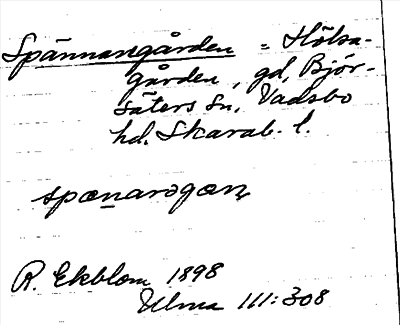 Spännaregården = Hölsa-
gården, gd, Björ-
säters sn, Vadsbo
hd. Skarab. l.
spænarəgæɳ
R. Ekblom 1898
Ulma 111:308